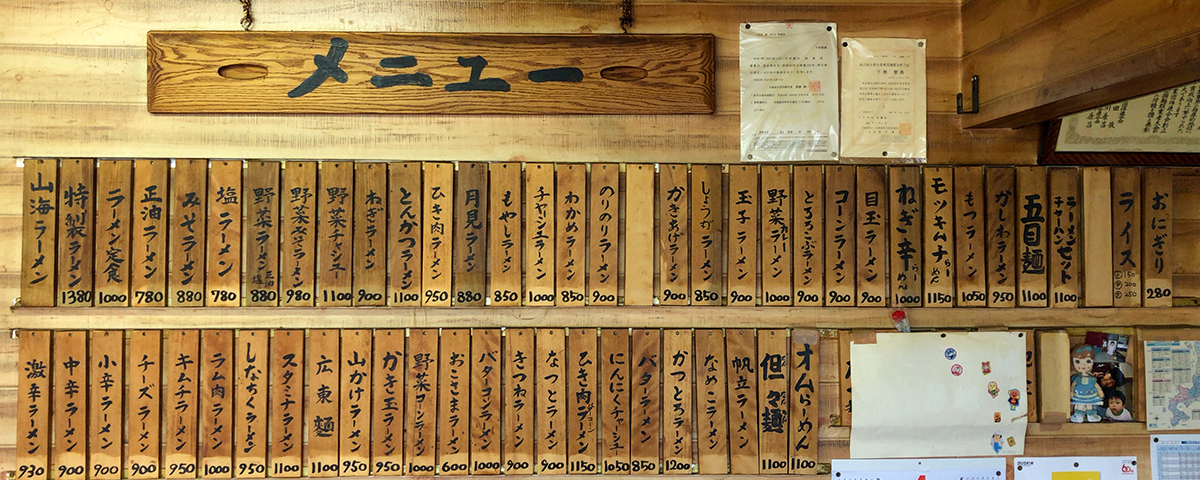 メニュー
山海ラーメン
特製ラーメン
1380
ラーメン定食
1000
正油ラーメン
780
みそラーメン
880
塩ラーメン
780
野菜ラーメン 正油 塩
880
野菜みそラーメン
980
野菜チャシュー
1100
ねぎラーメン
900
とんかつラーメン
1100
ひき肉ラーメン
950
月見ラーメン
880
もやしラーメン
850
チャーシュラーメン
1000
わかめラーメン
850
のりのりラーメン
900
かきあげラーメン
900
しょうがラーメン
850
玉子ラーメン
900
野菜カレーラーメン
1000
とろろこぶラーメン
900
コーンラーメン
900
目玉ラーメン
900
ねぎ辛らーめん
1000
モツキムチらーめん
1150
もつラーメン
1050
かしわラーメン
950
五目麺
1100
ラーメンチャーハンセット
1100
ライス
小 150
中 200
大 250
おにぎり
280
激辛ラーメン
930
中辛ラーメン
900
小辛ラーメン
900
チーズラーメン
900
キムチラーメン
950
ラム肉ラーメン
1000
しなちくラーメン
950
スタミナラーメン
1100
広東麺
1100
山かけラーメン
950
かき玉ラーメン
950
野菜コーンラーメン
1000
おこさまラーメン
600
バターコーンラーメン
1000
きつねラーメン
900
なっとラーメン
900
ひき肉ラーメン
1150
にんにくチャシュー
1050
バタラーメン
850
かつとろラーメン
1200
なめこラーメン
帆立ラーメン
但々麺
1100
オムらーめん
1100